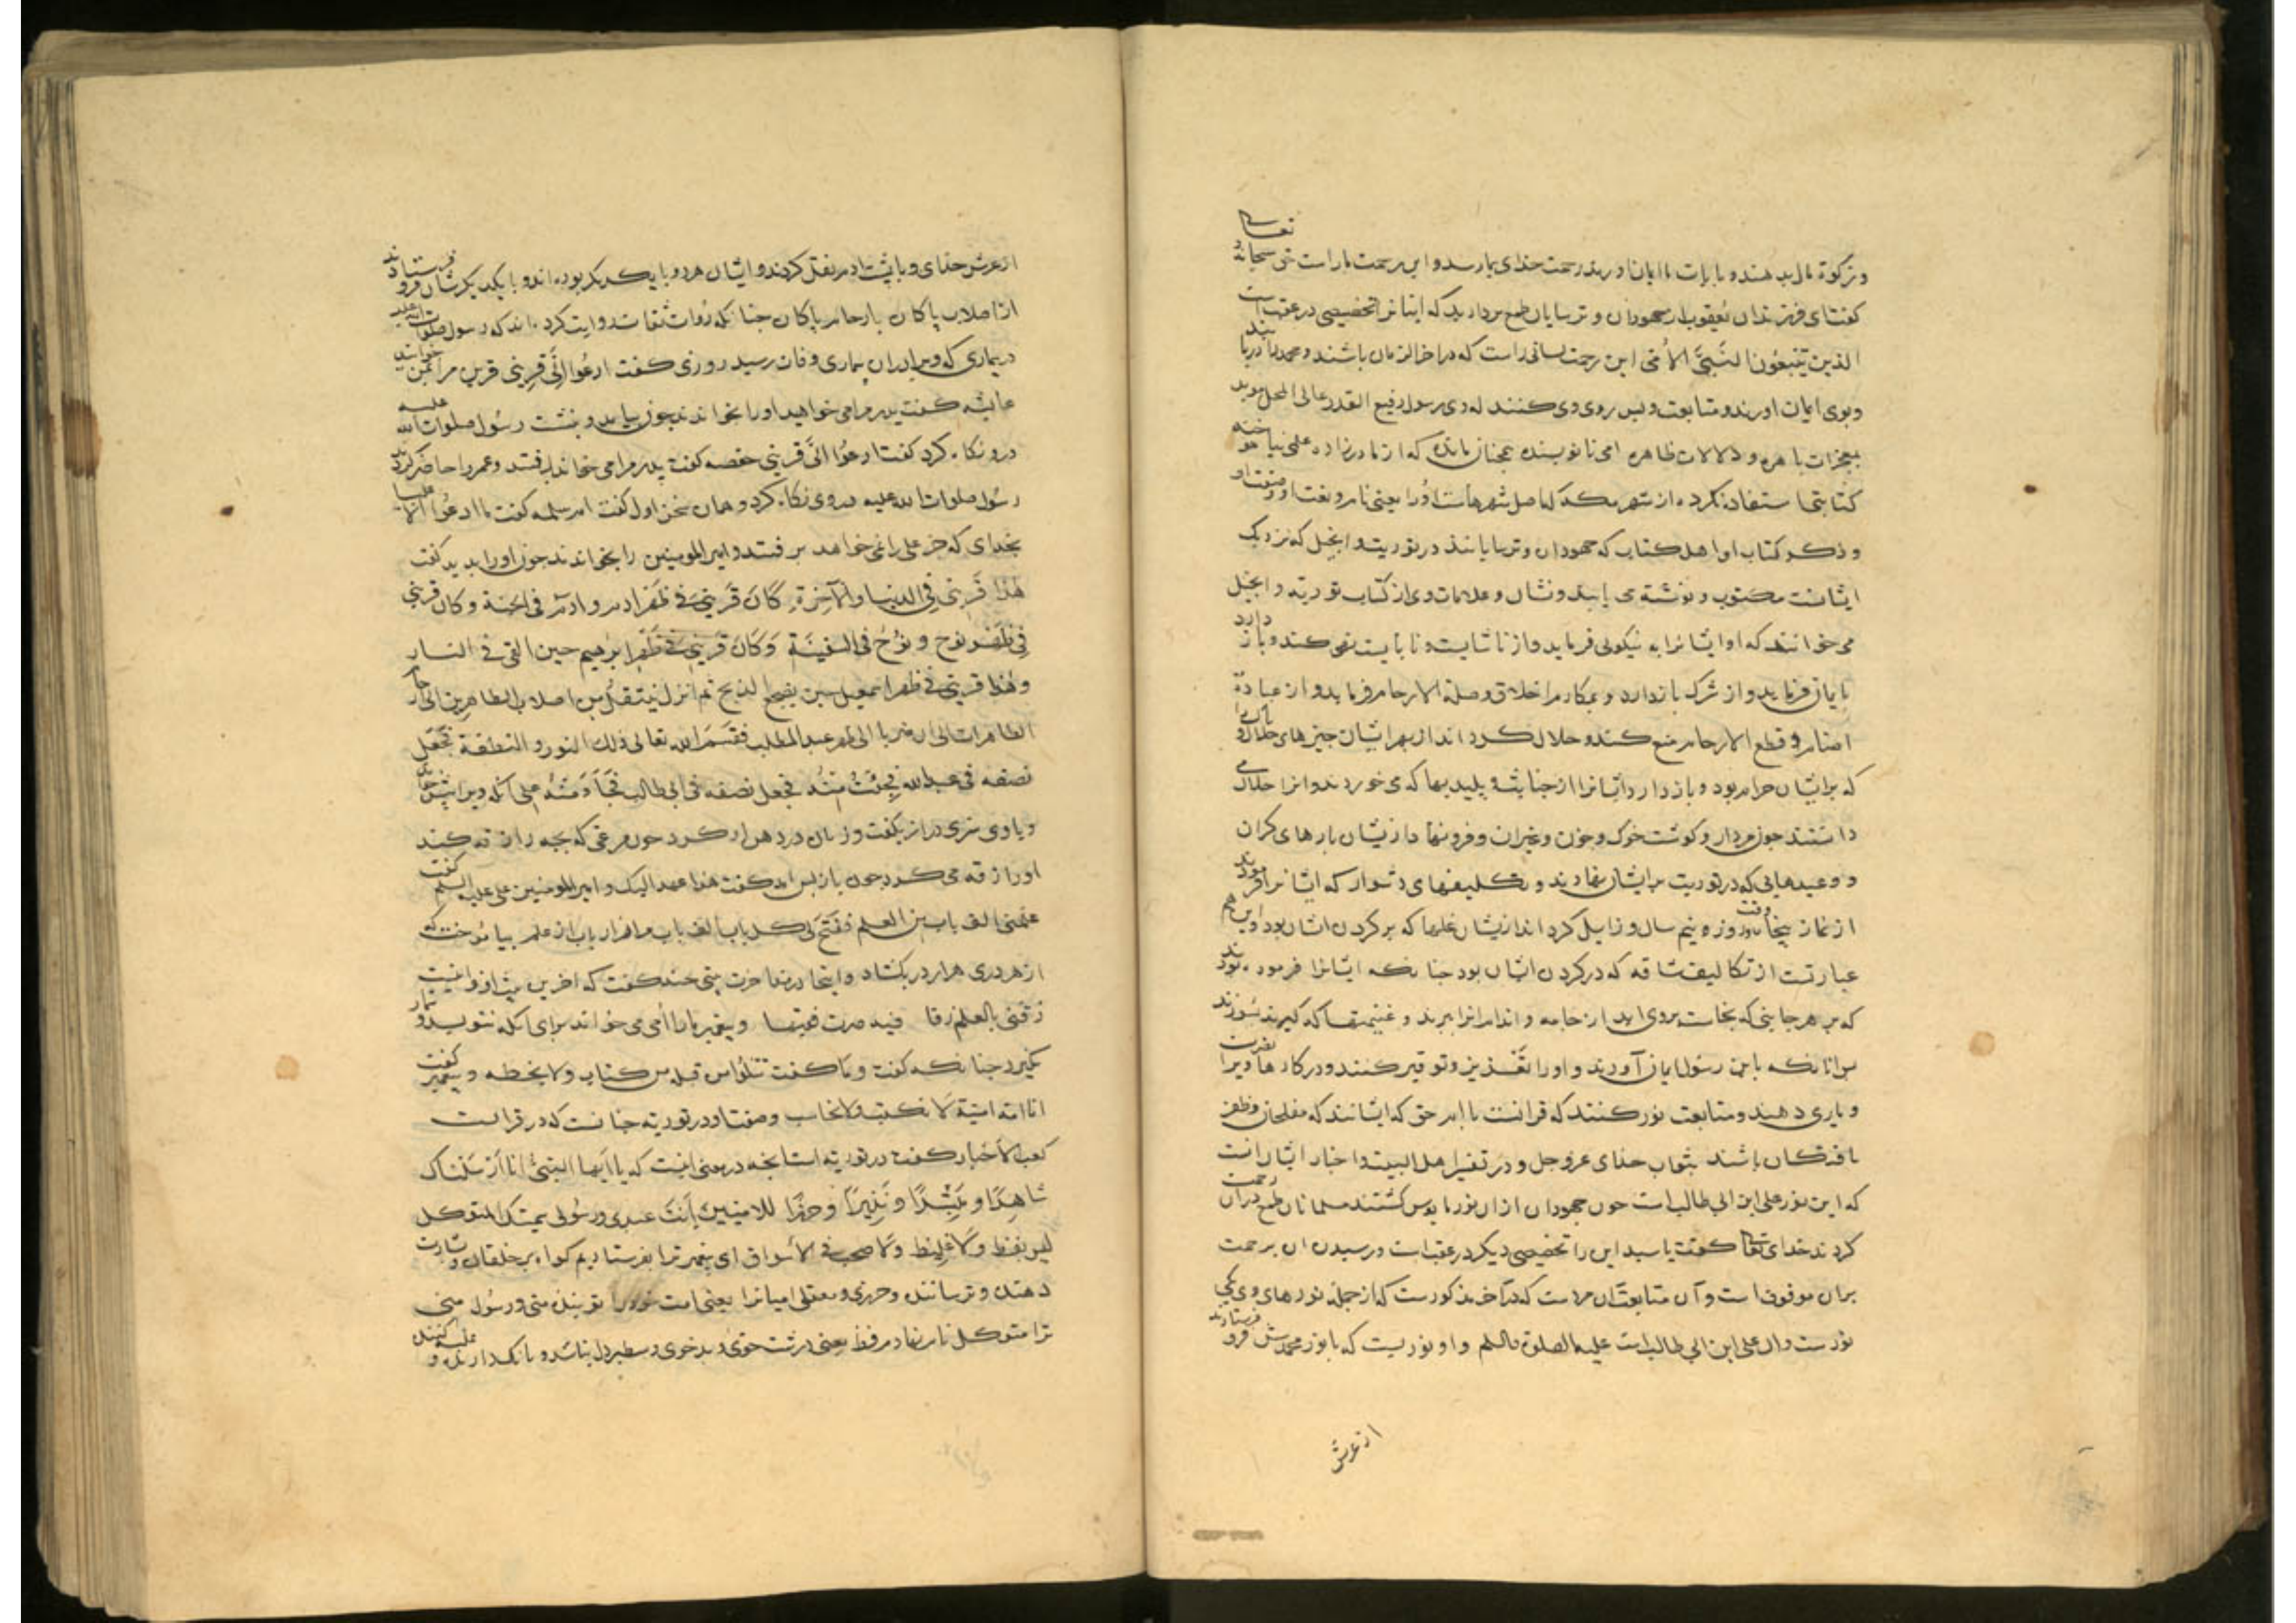 وزکوة مال بدهند و بایات ما ایمان اورند رحمت خدای بما رسد و این رحمت ماراست حق سبحانه و تعالی
کفت ای فرزندان یعقوب از جهودان و ترسایان طمع بردارید که این را تخصیصی در عقب است
الذین یتبعون النبی الامی این رحمت کسانی راست که در اخر الزمان باشند و محمد را دریابند
وبوی ایمان اورند و متابعت و پس روی وی کنند که وی رسول رفیع القدر عالی المحل موید
بمعجزات باهره و دلالات ظاهره امی نانویسنده همچنان مانده که از مادر زاده علمی نیاموخته
کتابتها استفاد نکرده از شهر مکه که اصل شهرهاست او را یعنی نام و نعت او و صفت او
و ذکر کتاب او اهل کتاب که جهودان و ترسایانند در توریت و انجیل که نزدیک
ایشانست مکتوب و نوشته می یابند و نشان و علامات وی از کتاب توریة و انجیل
می خوانند که او ایشانرا به نیکوئی فرماید و از ناشایست و نابایست نهی کند و باز دارد
بایمان فرماید و از شرک باز دارد و بمکارم اخلاق و صلة الارحام فرماید و از عبادة
اصنام و قطع الارحام منع کند و حلال کرداند از بهر ایشان چیزهای حلال و پاک را
که بر ایشان حرام بود و باز دارد ایشانرا از خبایث و پلیدیها که می خوردند و انرا حلال می
داشتند چون مردار و کوشت خوک و خون و غیر ان و فرو نهاد از یشان بارهای کران
و وعیدهایی که در توریت بر ایشان نهادند و تکلیفهای دشوار که ایشانرا فرمودند
از نماز پنجاه وقت و روزه نیم سال و زایل کرداند از یشان غلها که بر کردن ایشان بود و این هم
عبارتست از تکالیف شاقه که در کردن ایشان بود چنانکه ایشانرا فرموده بودند
که بر هر جایی که نجاست بروی اید از جامه و اندام انرا ببرند و غنیمتها که کیرند بسوزند
پس انانکه باین رسول ایمان آوردند و او را تعزیز و توقیر کنند و در کارها ویرا نصرت
و یاری دهند و متابعت نور کنند که قرانست با امر حق که ایشانند که مفلحان و ظفر
یافتکان باشند بثواب خدای عزوجل و در تفسیر اهل البیت و اخبار ایشانست
که این نور علی ابن ابی طالب است چون جهودان از ان نور مایوس کشتند مسلمانان طمع دران رحمت
کردند خدای تعالی کفت یا سید این را تخصیصی دیکر در عقب است و رسیدن ان برحمت
بران موقوف است و آن متابعت ان مردست که در آخر مذکورست که از جمله نورهای وی یکی
نورست وان علی ابن ابی طالب است علیه الصلوة والسلم و او نوریست که با نور محمدش فرو فرستادند
از عرش
از عرش خدای و با پشت ادم نقل کردند و ایشان هر دو با یکدیکر بوده اند و با یکدیکرشان فرو فرستادند
از اصلاب پاکان بارحام پاکان چنانکه روات ثقات روایت کرده اند که رسول صلوات الله علیه
در بیماری که ویرا دران بیماری وفات رسید روزی کفت ادعوا الی قرینی قرین مرا بمن خوانید
عایشه کفت پدر مرا می خواهد او را بخواندند چون بیامد و بنشست رسول صلوات الله علیه
درو نکاه کرد کفت ادعوا الی قرینی حفصه کفت پدر مرا می خواند برفتند و عمر را حاضر کردند
رسول صلوات الله علیه در وی نکاه کرد و همان سخن اول کفت ام سلمه کفت ادعوا علیا
بخدای که جز علی را نمی خواهد برفتند و امیر المومنین را بخواندند چون او را بدید کفت
هذا قرینی فی الدنیا والآخرة کان قرینی فی ظهر ادم و ادم فی الجنة و کان قرینی
فی ظهر نوح و نوح فی السفینة و کان قرینی فی ظهر ابرهیم حین القی فی النار
وهذا قرینی فی ظهر اسمعیل حین یضجع الذبح ثم لم انزل ننتقل من اصلاب الطاهرین الی ارحام
الطاهرات الی ان صرنا الی ظهر عبد المطلب فقسم الله تعالی ذلک النور والنطفة فجعل
نصفه فی عبد الله فجئت منه فجعل نصفه فی ابی طالب فجاء منه علی انکه ویرا پیش خواند
و با وی سری دراز بکفت و زبان در دهن او کرد چون مرغی که بچه را زقه کند
او را زقه می کرد چون باز پس امد کفت هذا عهد الیک و امیر المومنین علی علیه السلم کفت
علمنی الف باب من العلم ففتح لی کل باب الف باب مرا هزار باب از علم بیاموخت که
از هر دری هزار در بکشاد و اینجا در مفاخرت بیتی چند کفت که اخرین بیت ازو اینست
زقنی بالعلم زقا فیه صرت فقیها و پیغمبر ما را امی می خواند برای انکه ننویسد و شمار
نکیرد چنانکه کفت و ما کنت تتلوا من قبله من کتاب ولا تخطه و پیغمبر کفت
انا امة امیة لا نکتب ولا نحاسب وصفت او در توریة چنانست که در قرانست
کعب الاحبار کفت در توریة است انچه در معنی اینست که یا ایها النبی انا ارسلناک
شاهدا و مبشرا و نذیرا و حرزا للامیین انت عبدی ورسولی سمیتک المتوکل
لیس بفظ ولا غلیظ ولا صخب فی الاسواق ای پیغمبر ترا بفرستادیم کواه بر خلقان و بشارت
دهنده و ترساننده و حرزی و معقلی امیانرا یعنی امت خود را تو بنده منی و رسول منی
ترا متوکل نام نهادم فظ یعنی درشت خوی و بد خوی و سطبر دل نباشد و بانک دارنده و